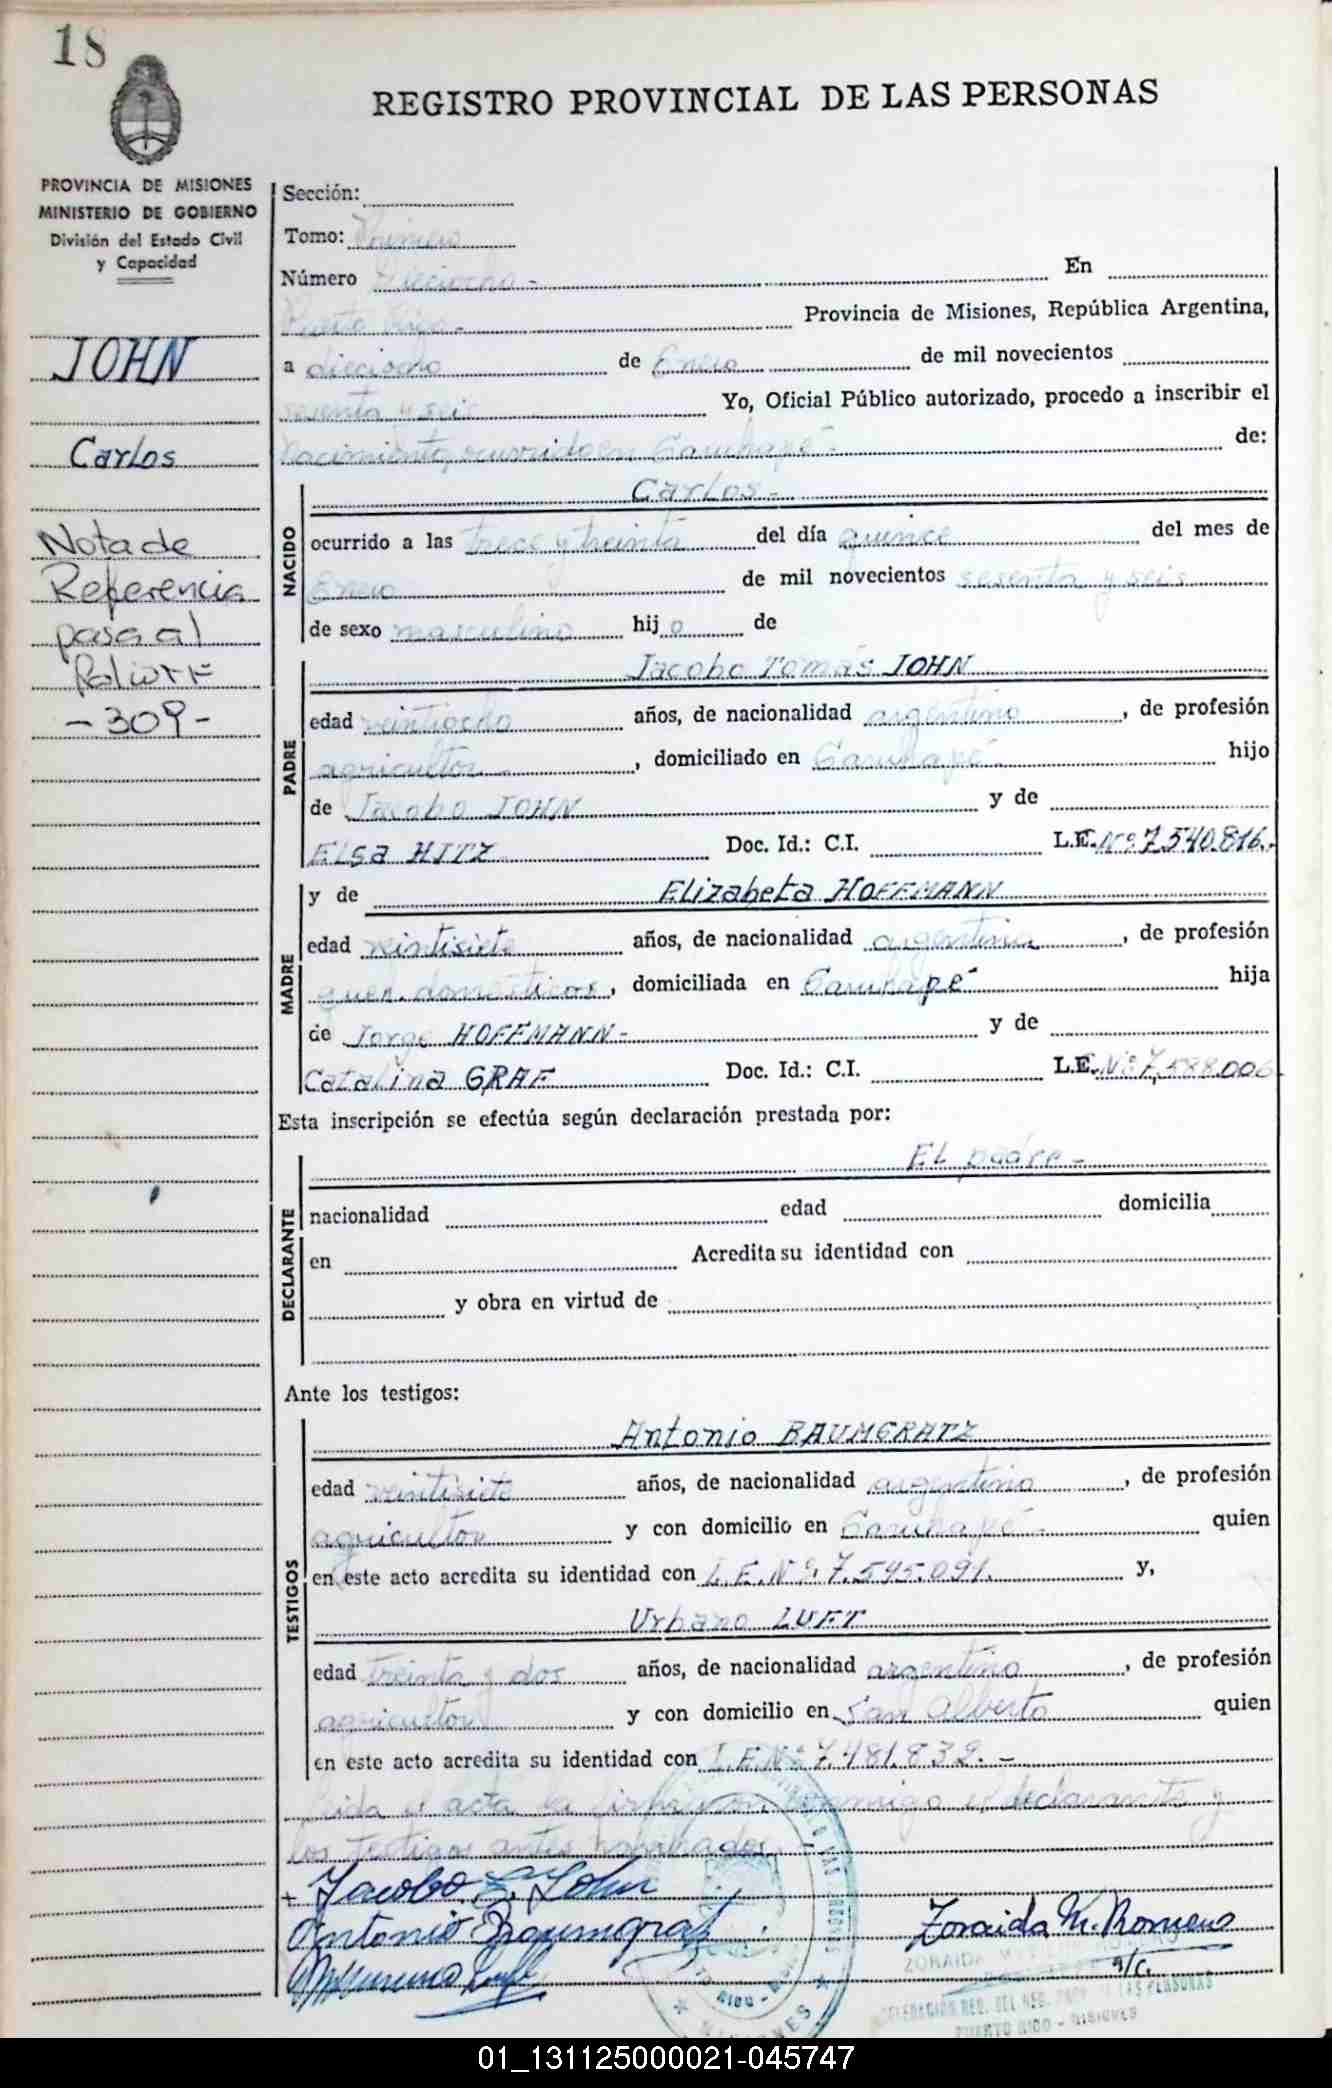 18
REGISTRO PROVINCIAL DE LAS PERSONAS
PROVINCIA DE MISIONES
MINISTERIO DE GOBIERNO
División del Estado Civil
y Capacidad
JOHN
Carlos
Nota de
Referencia
pasa al
- 309 -
Sección:
Tomo: Primero
Número Dieciocho - En
Puerto Rico - Provincia de Misiones, República Argentina,
a dieciocho de Enero de mil novecientos
sesenta y seis Yo, Oficial Público autorizado, procedo a inscribir el
Nacimiento ocurrido en Garuhapé - de:
NACIDO
Carlos -
ocurrido a las trece y treinta del día quince del mes de
Enero de mil novecientos sesenta y seis
de sexo masculino hijo de
PADRE
Jacobo Tomás JOHN
edad veintiocho años, de nacionalidad argentino, de profesión
agricultor, domiciliado en Garuhapé hijo
de Jacobo JOHN y de
Elsa HITZ Doc. Id.: C.I. L.E. Nº 7.540.816.-
MADRE
y de Elizabeta HOFFMANN
edad veintisiete años, de nacionalidad argentina, de profesión
queh. domésticos, domiciliada en Garuhapé hija
de Jorge HOFFMANN - y de
Catalina GRAF Doc. Id.: C.I. L.E. Nº 7.588.006
Esta inscripción se efectúa según declaración prestada por:
DECLARANTE
El padre -
nacionalidad edad domicilia
en Acredita su identidad con
y obra en virtud de
Ante los testigos:
TESTIGOS
Antonio BAUMGRATZ
edad veintisiete años, de nacionalidad argentino, de profesión
agricultor y con domicilio en Garuhapé - quien
en este acto acredita su identidad con L.E. Nº 7.595.091. y,
Urbano LUFT
edad treinta y dos años, de nacionalidad argentino, de profesión
agricultor y con domicilio en San Alberto quien
en este acto acredita su identidad con L.E. Nº 7.481.832. -
Leida el acta la firman conmigo el declarante y
los testigos antes nombrados. -
+ Jacobo T. John
Antonio Baumgratz
Zoraida M. Romero
a/c.
PUERTO RICO - MISIONES
01_131125000021-045747